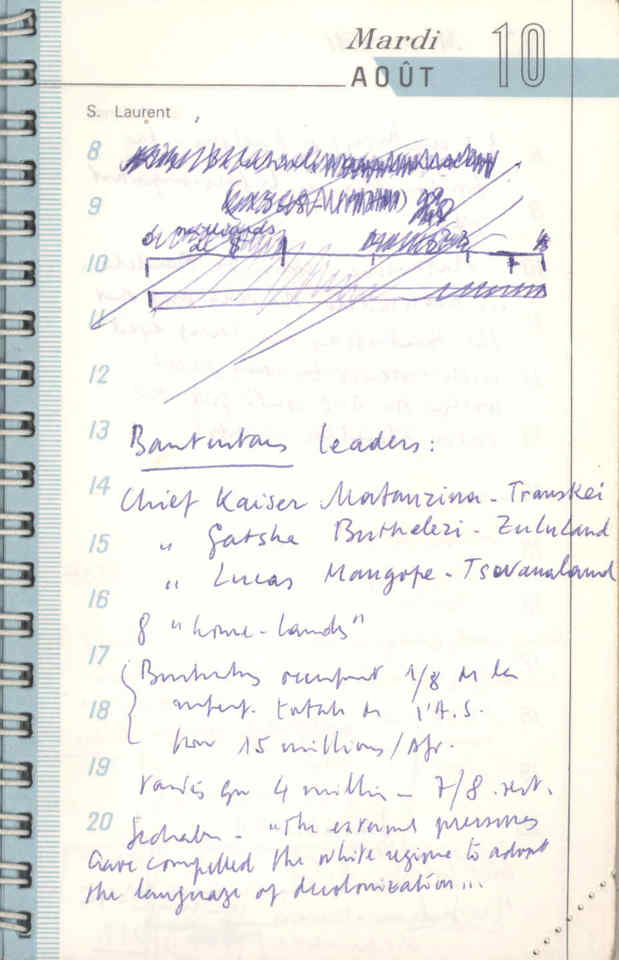 Mardi 10
AOÛT
S. Laurent
8
9
milliards
de
10
11
12
13 Bantustans leaders:
14 Chief Kaiser Matanzima - Transkei
15 " Gatsha Buthelezi - Zululand
" Lucas Mangope - Tswanaland
16
8 "home-lands"
17 Bantustans occupent 1/8 de la
18 superf. totale de l'A.S.
pour 15 millions/Afr.
19 tandis que 4 millions - 7/8 rest.
20 Sechaba - "The external pressures
have compelled the white regime to adopt
the language of decolonization...